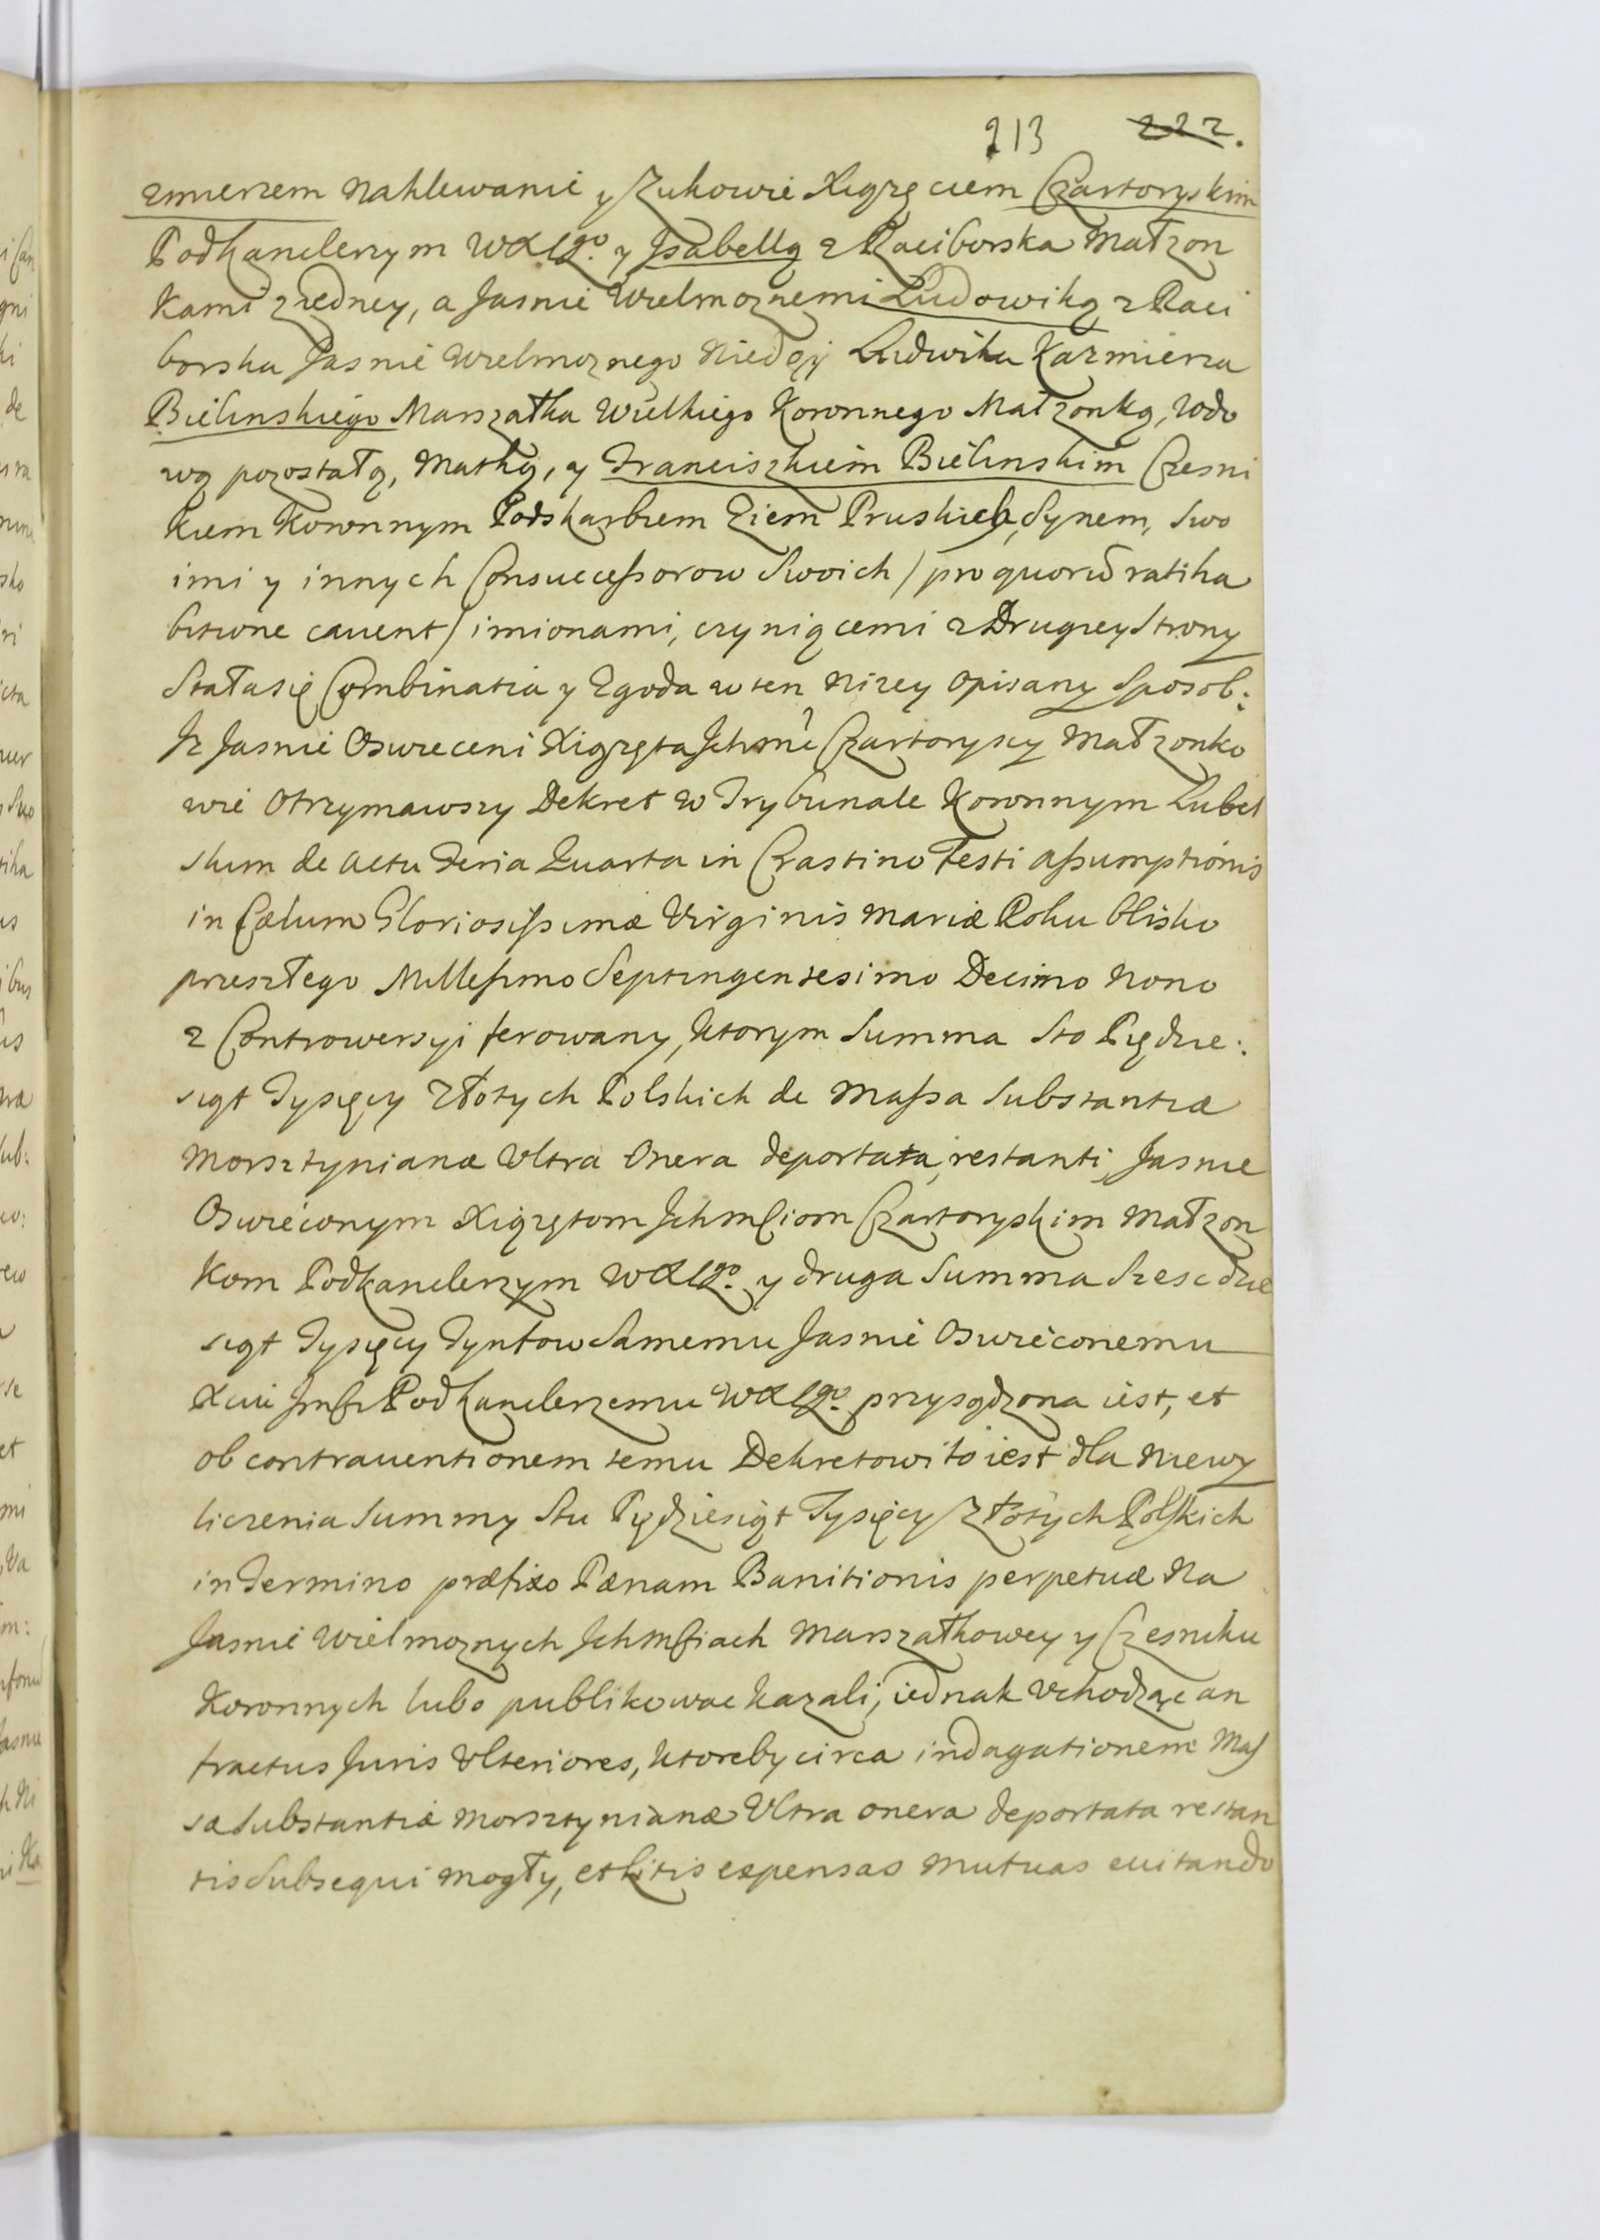 213 222.
zmierzem Na Klewanie y Zukowie Xiążęciem Czartoryskim
Podkanclerzym WXLgo. y Isabellą z Raciborska Małzon
kami z iedney, a Jasnie Wielmoznemi Ludowiką z Raci
borska Jasnie Wielmoznego Niegdy Ludwika Kazmierza
Bielinskiego Marszałka Wielkiego Koronnego Małzonką, Wdo
wą pozostałą, Matką, y Franciszkiem Bielinskim Czesni
kiem Koronnym Podskarbiem Ziem Pruskich, Synem, Swo
imi y innych Consuccessorow Swoich / pro quorū ratiha
bitione cavent / imionami, czyniącemi z Drugiey Strony
Stała się Combinatia y Zgoda w ten nizey opisany Sposob:
Iz Jasnie Oswieceni Xiązęta Ichmć Czartoryscy Małzonko
wie Otrzymawszy Dekret w Trybunale Koronnym Lubel
skim de Actu Feria Quarta in Crastino Festi Assumptionis
in Cælum Gloriosissimæ Virginis Mariæ Roku blisko
przeszłego Millesimo Septingentesimo Decimo Nono
z Controwersyi ferowany, ktorym Summa Sto Piędzie:
siąt Tysięcy Złotych Polskich de Massa Substantiæ
Morsztynianæ Ultra Onera deportata, restanti, Jasnie
Oswieconym Xiązętom Ichmściom Czartoryskim Małzon
kom Podkanclerzym WXLgo. y druga Summa Szescdzie
siąt Tysięcy Tynfow Samemu Jasnie Oswieconemu
Xciu Jmści Podkanclerzemu WXLgo. przysądzona iest, et
ob contraventionem temu Dekretowi to iest dla Niewy
liczenia Summy Stu Piędziesiąt Tysięcy Złotych Polskich
in Termino præfixo Pænam Banitionis perpetuæ Na
Jasnie Wielmoznych Ichmściach Marszałkowey y Czesniku
Koronnych lubo publikowac kazali, iednak Uchodząc an
fractus Juris Ulteriores, ktoreby circa indagationem Mas
sæ Substantiæ Morsztynianæ Ultra onera deportata restan
tis Subsequi mogły, et Litis expensas mutuas evitando